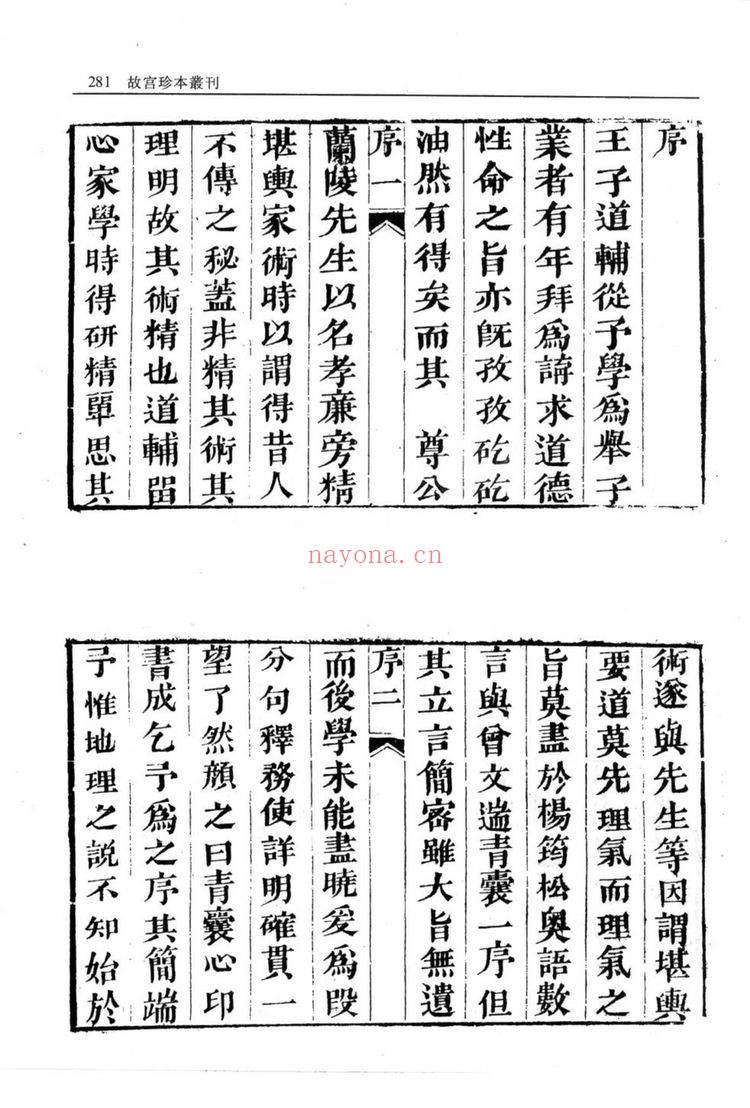 281 故宫珍本叢刊
序
王子道輔從予學爲舉子
業者有年拜爲請求道德
性命之旨亦旣孜孜矻矻
油然有得矣而其 尊公
序一
蘭陵先生以名孝廉旁精
堪輿家術時以謂得昔人
不傳之秘蓋非精其術其
理明故其術精也道輔畱
心家學時得研精覃思其
nayona.cn
術遂與先生等因謂堪輿
要道莫先理氣而理氣之
旨莫盡於楊筠松奥語數
言與曾文遄青囊一序但
其立言簡密雖大旨無遺
序二
而後學未能盡曉爰爲段
分句釋務使詳明確貫一
望了然顏之曰青囊心印
書成乞予爲之序其簡端
予惟地理之説不知始於